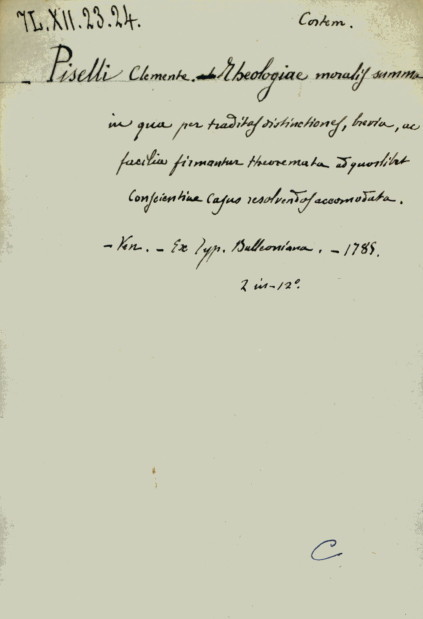 71.XII.23.24.
Costem.
- Piselli Clemente. - Theologiae moralis summa
in qua per traditas distinctiones, brevia, ac
facilia firmantur theoremata ad quoslibet
Conscientiae Casus resolvendos accomodata.
- Ven. - Ex Typ. Balleoniana. - 1785.
2 in-12°.
C